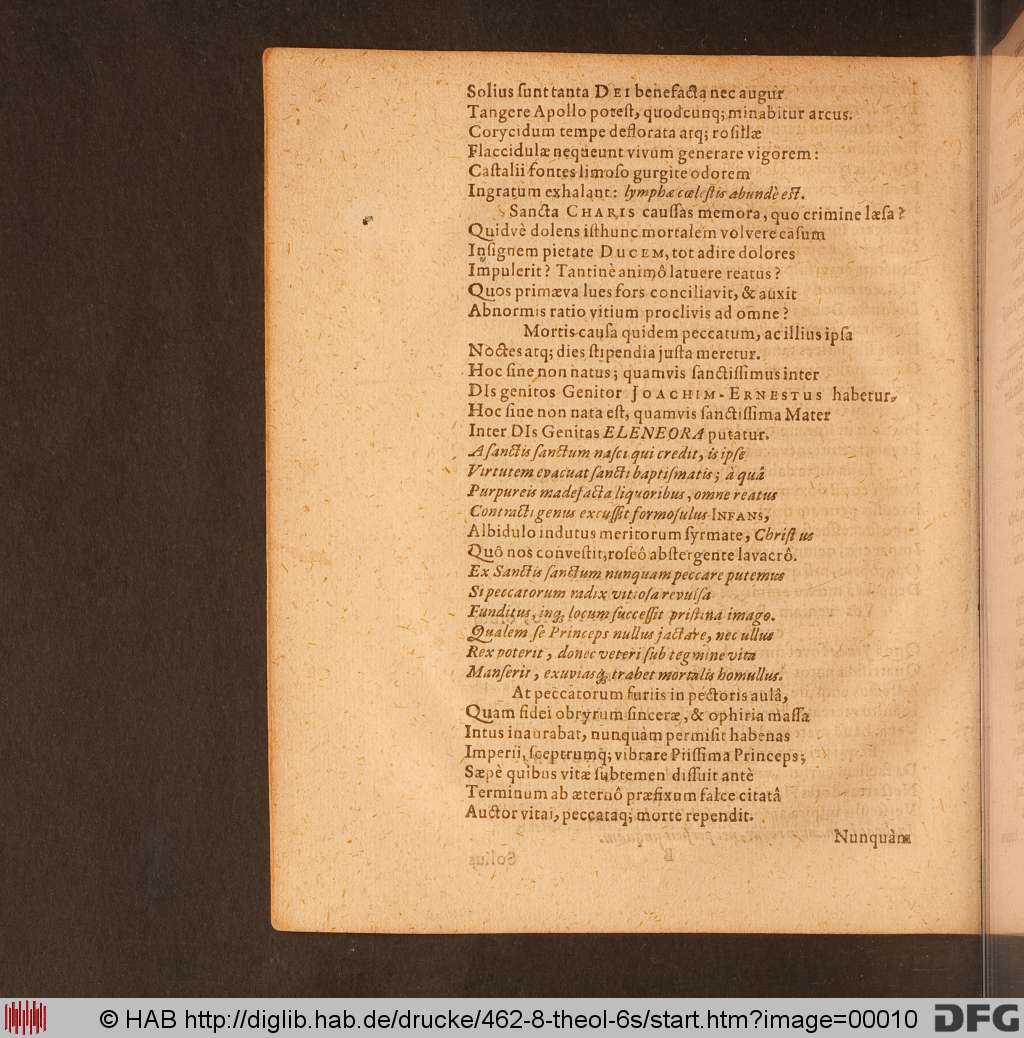 Solius ſunt tanta DEI benefacta nec augur
Tangere Apollo poteſt, quodcunq; minabitur arcus.
Corycidum tempe deflorata atq; roſillæ
Flaccidulæ nequeunt vivum generare vigorem:
Caſtalii fontes limoſo gurgite odorem
Ingratum exhalant: lymphæ cœleſtis abundè eſt.
Sancta CHARIS cauſſas memora, quo crimine læſa?
Quidvè dolens iſthunc mortalem volvere caſum
Inſignem pietate DUCEM, tot adire dolores
Impulerit? Tantinè animô latuere reatus?
Quos primæva lues fors conciliavit, & auxit
Abnormis ratio vitium proclivis ad omne?
Mortis cauſa quidem peccatum, ac illius ipſa
Noctes atq; dies ſtipendia juſta meretur.
Hoc ſine non natus; quamvis ſanctiſſimus inter
DIs genitos Genitor JOACHIM-ERNESTUS habetur,
Hoc ſine non nata eſt, quamvis ſanctiſſima Mater
Inter DIs Genitas ELENEORA putatur.
A ſanctis ſanctum naſci qui credit, is ipſe
Virtutem evacuat ſancti baptiſmatis; à quâ
Purpureis madefacta liquoribus, omne reatus
Contracti genus excuſſit formoſulus INFANS,
Albidulo indutus meritorum ſyrmate, Chriſtus
Quô nos conveſtit, roſeô abſtergente lavacrô.
Ex Sanctis ſanctum nunquam peccare putemus
Si peccatorum radix vitioſa revulſa
Funditus, inq; locum ſucceſſit priſtina imago.
Qualem ſe Princeps nullus jactare, nec ullus
Rex poterit, donec veteri ſub tegmine vita
Manſerit, exuviasq; trahet mortalis homullus.
At peccatorum furiis in pectoris aulâ,
Quam fidei obryrum ſinceræ, & ophiria maſſa
Intus inaurabat, nunquàm permiſit habenas
Imperii, ſceptrumq; vibrare Piiſſima Princeps;
Sæpè quibus vitæ ſubtemen diſſuit antè
Terminum ab æternô præfixum falce citatâ
Auctor vitai, peccataq; morte rependit.
Nunquàm
© HAB http://diglib.hab.de/drucke/462-8-theol-6s/start.htm?image=00010
DFG